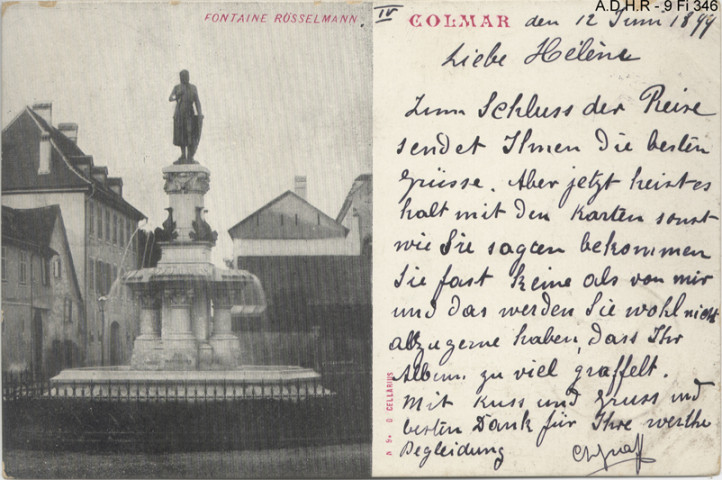 A.D.H.R - 9 Fi 346
FONTAINE RÜSSELMANN
IV
COLMAR den 12 Juni 1899
Liebe Hélène
Zum Schluss der Reise
sendet Ihnen die besten
Grüsse. Aber jetzt heist es
halt mit den Karten sonst
wie Sie sagten bekommen
Sie fast keine als von mir
und das werden Sie wohl nicht
allzugerne haben, dass Ihr
Album zu viel graffelt.
Mit Kuss und Gruss und
besten Dank für Ihre werthe
Begleidung
CELLARIUS